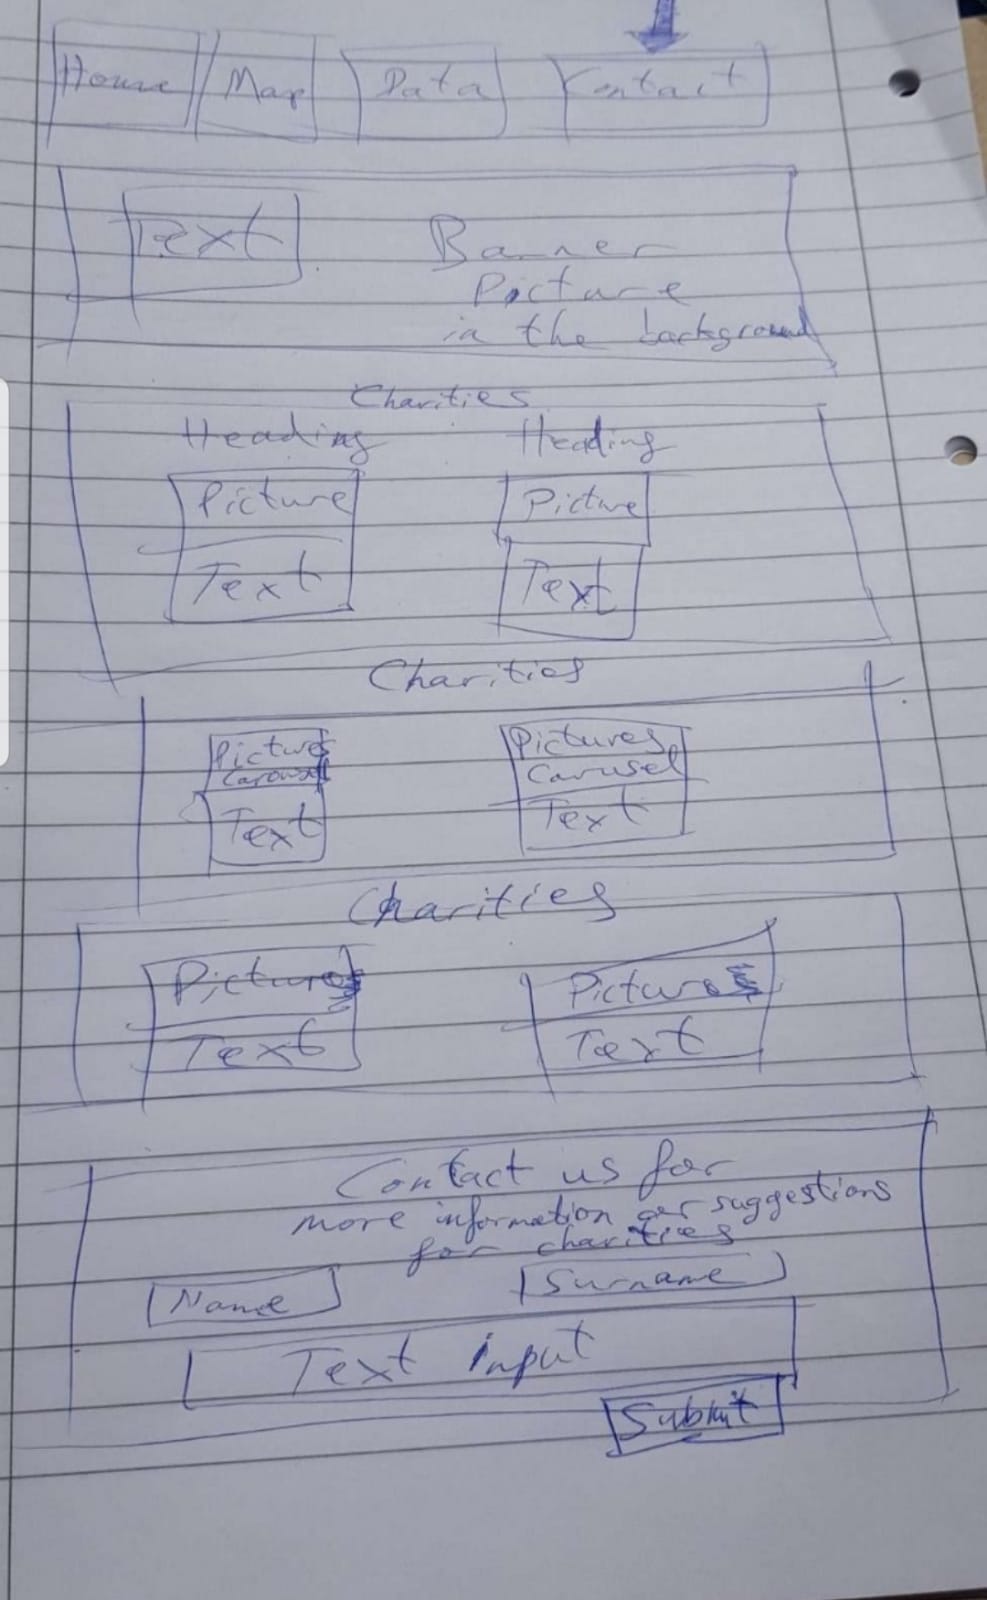 Home Map Data Contact
Text
Banner
Picture
in the background
Charities
Heading Heading
Picture Picture
Text Text
Charities
Pictures Pictures
Carousel Carusel
Text Text
Charities
Pictures Pictures
Text Text
Contact us for
more information or suggestions
for charities
Name Surname
Text input
Submit